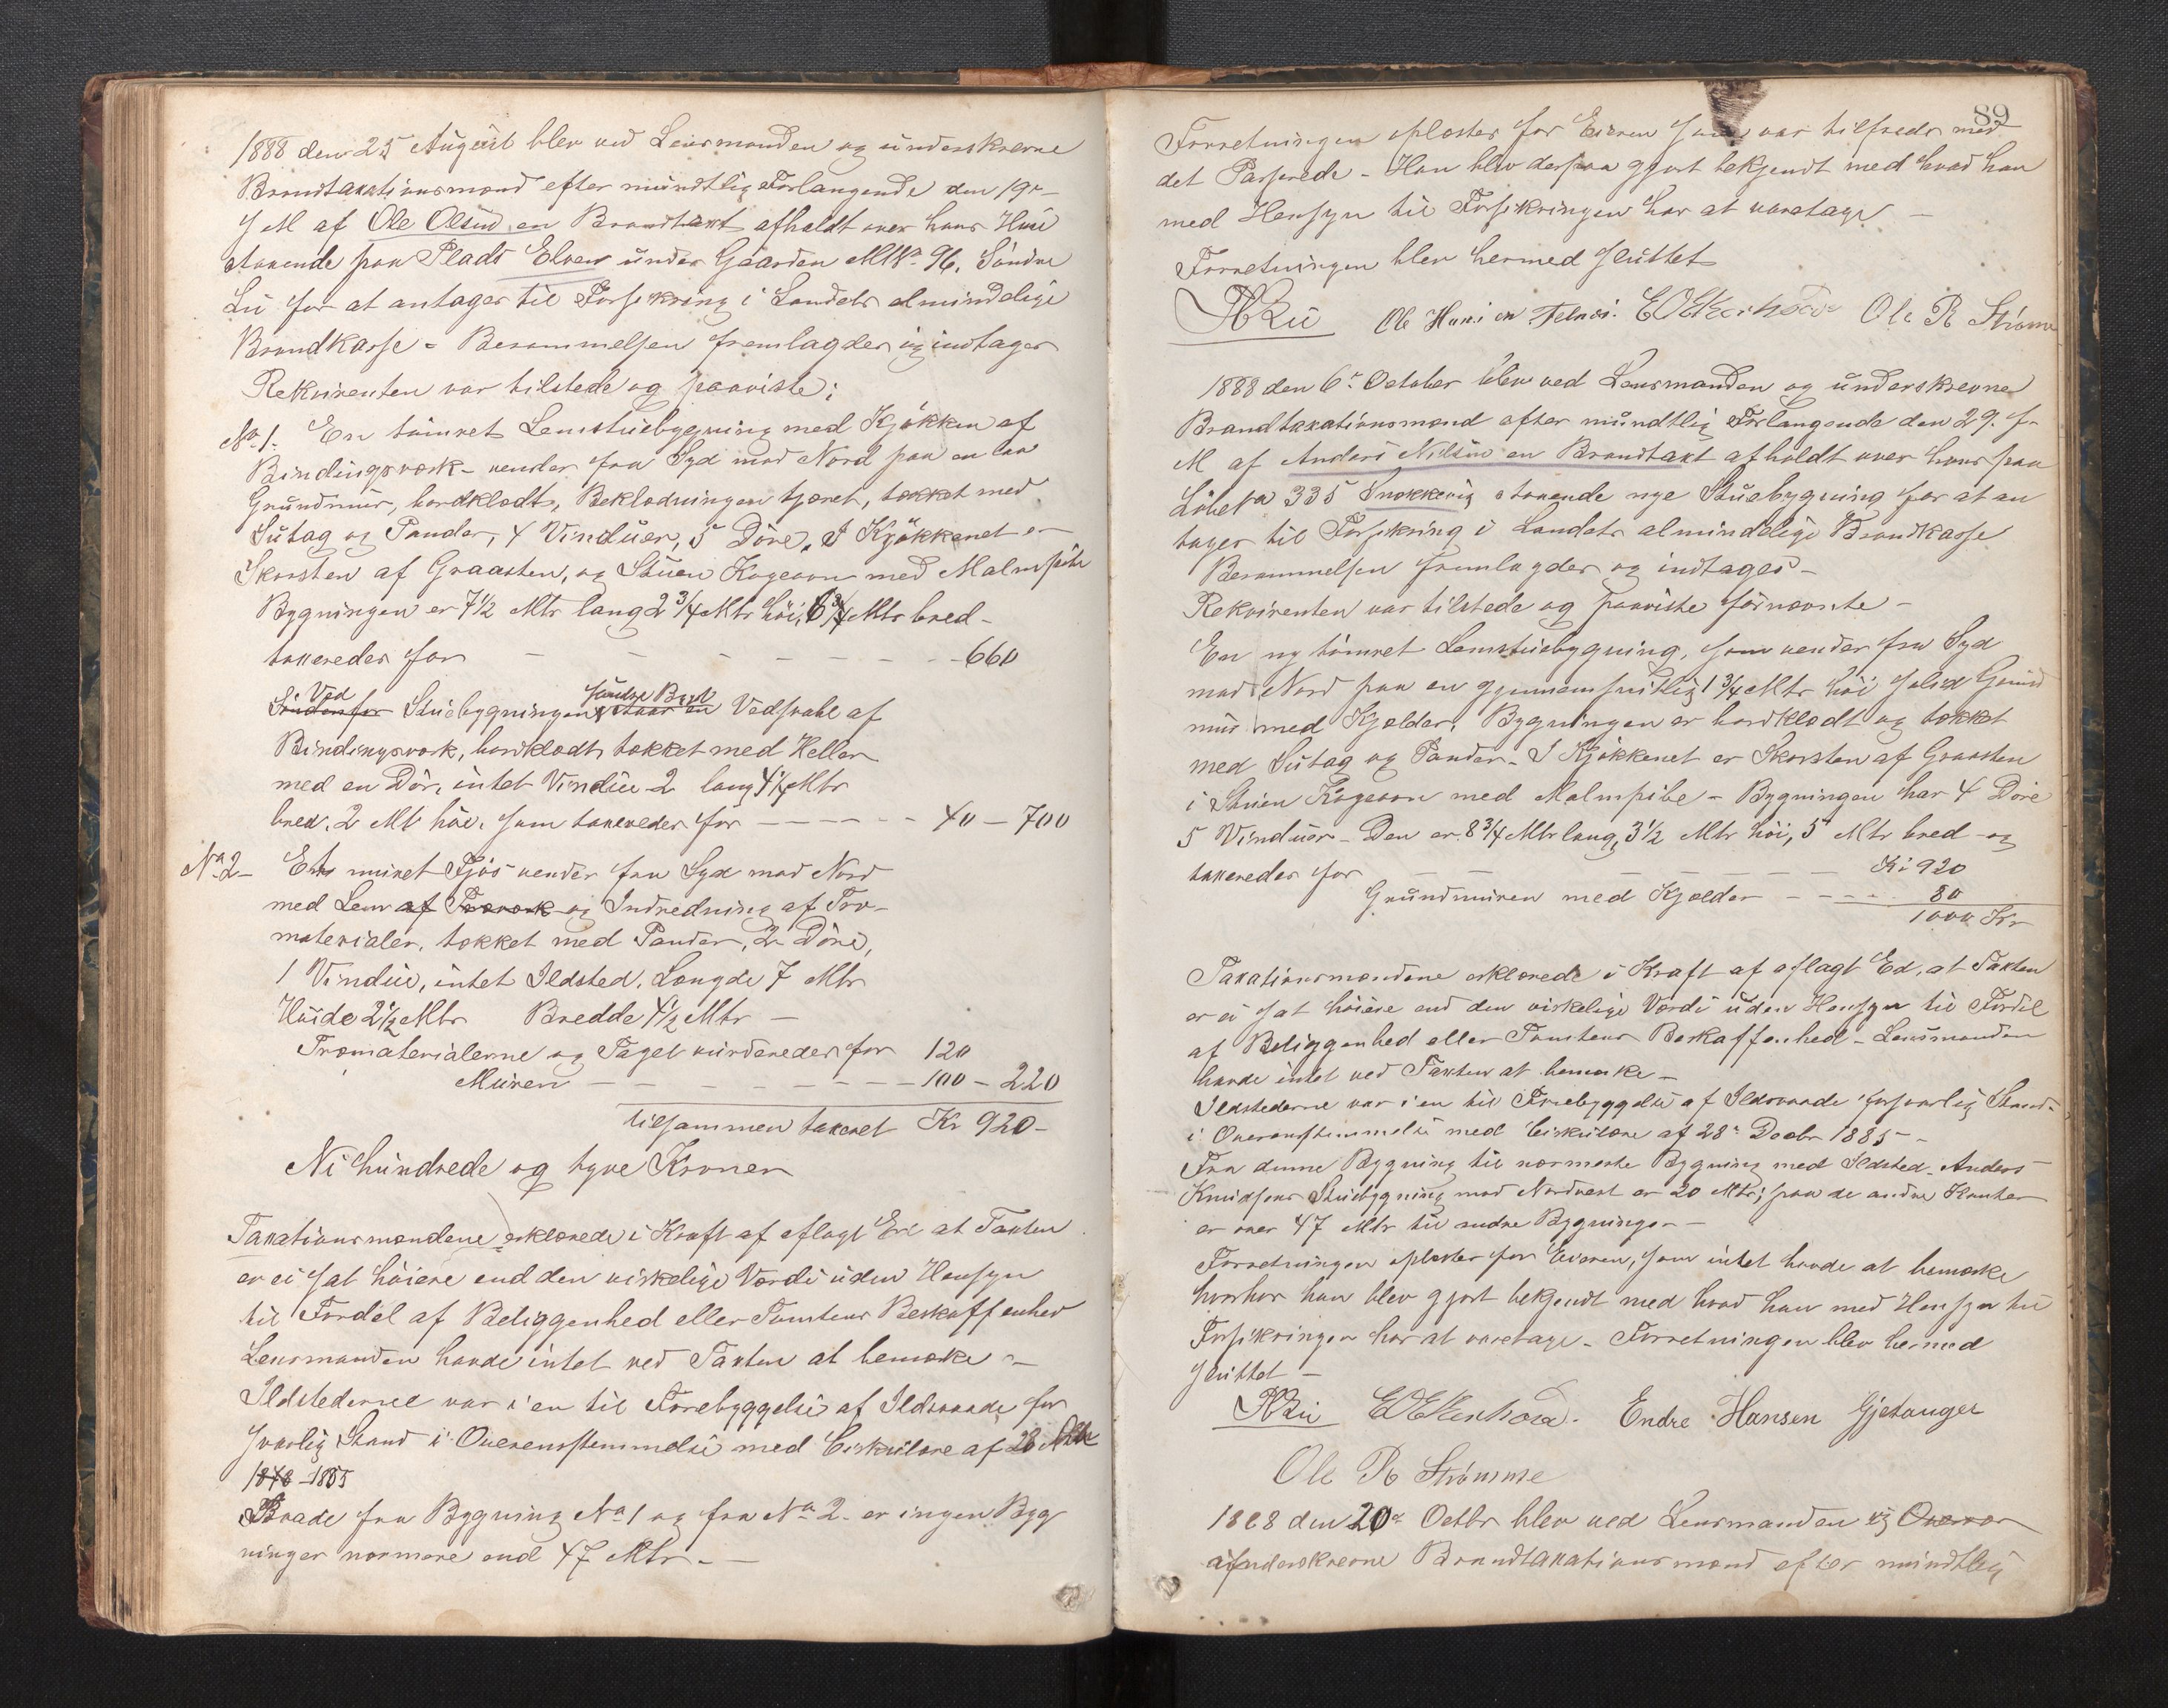 1888 den 25 August blev ved Lensmanden og underskrevne
Brandtaxationsmænd efter mundtlig Forlangende den 19de
d M af Ole Olsen en Brandtaxt afholdt over hans Huse
staaende paa Plads Elven under Gaarden MNo 96, Søndre
Lii for at antages til Forsikring i Landets almindelige
Brandkasse - Berammelsen fremlagdes og indtages
Rekvirenten var tilstede og paaviste:
No 1. En tømret Lemstuebygning med Kjøkken af
Bindingsverk - vender fra Syd mod Nord paa en lav
Grundmur, bordklædt, Beklædningen tjæret, tækket med
Sutag og Pander, 4 Vinduer, 5 Døre. I Kjøkkenet er
Skorsten af Graasten, og Stuen Kogeovn med Malmpibe
Bygningen er 7 1/2 Mtr lang 2 3/4 Mtr høi, 6 3/4 Mtr bred -
taxeredes for - - - - - - - 660
Ved søndre Bræk
Søndenfor Stuebygningen staar en Vedsvahl af
Bindingsværk, bordklædt, tækket med Heller
med en Dør, intet Vindue 2 lang 4 1/2 Mtr
bred, 2 Mtr høi. som taxeredes for - - - - - - 40 - 700
No 2 - Et muret Fjøs vender fra Syd mod Nord
med Lem af Træverk og Indredning af Træ-
materialer, tækket med Pander, 2 Døre,
1 Vindue, intet Ildsted, Længde 7 Mtr
Høide 2 1/2 Mtr Bredde 4 1/2 Mtr -
Træmaterialerne og Taget vurderedes for 120
Muren - - - - - - - - 100 - 220
tilsammen taxeret Kr 920 -
Ni hundrede og tyve Kroner
Taxationsmændene erklærede i Kraft af aflagt Ed at Taxten
er ei sat høiere end den virkelige Værdi uden Hensyn
til Fordel af Beliggenhed eller Tomtens Beskaffenhed
Lensmanden havde intet ved Taxten at bemærke -
Ildstederne var i en til Forebyggelse af Ildsvaade for
svarlig Stand i Overensstemmelse med Cirkulære af 28
1878 - 1885
Baade fra Bygning No 1 og fra No 2 - er ingen Byg
ninger nærmere end 47 Mtr. -
89
Forretningen oplæstes for Eieren som var tilfreds med
det Passerede - Han blev derpaa gjort bekjendt med hvad han
med Hensyn til Forsikringen har at varetage -
Forretningen blev hermed sluttet
Ole Hansen Ole R Strømme
1888 den 6te October blev ved Lensmanden og underskrevne
Brandtaxationsmænd efter mundtlig Forlangende den 29. f.
M af Anders Nilsen en Brandtaxt afholdt over hans paa
Løbe No 335 Snekkevig staaende nye Stuebygning for at an
tages til Forsikring i Landets almindelige Brandkasse
Berammelsen fremlagdes og indtages -
Rekvirenten var tilstede og paaviste førnævnte -
En ny tømret Lemstuebygning, som vender fra Syd
mod Nord paa en gjennemsnitlig 1 3/4 Mtr høi solid Grund
mur med Kjelder. Bygningen er bordklædt og tækket
med Sutag og Pander - I Kjøkkenet er Skorsten af Graasten
i Stuen Kogeovn med Malmpibe - Bygningen har 4 Døre
5 Vinduer - Den er 8 3/4 Mtr lang, 3 1/2 Mtr høi, 5 Mtr bred - og
taxeredes for - - - - - - - Kr 920
Grundmuren med Kjelder - - - - 80
1000 Kr
Taxationsmændene erklærede i Kraft af aflagt Ed, at Taxten
er ei sat høiere end den virkelige Værdi uden Hensyn til Fordel
af Beliggenhed eller Tomtens Beskaffenhed - Lensmanden
havde intet ved Taxten at bemærke -
Ildstederne var i en til Forebyggelse af Ildsvaade forsvarlig Stand
i Overensstemmelse med Cirkulære af 28de Decbr 1885 -
Fra denne Bygning til nærmeste Bygning med Ildsted - Anders
Knudsens Stuebygning mod Nordvest er 20 Mtr; paa de andre Kanter
er over 47 Mtr til andre Bygninger -
Forretningen oplæstes for Eieren, som intet havde at bemærke
hvorhos han blev gjort bekjendt med hvad han med Hensyn til
Forsikringen har at varetage - Forretningen blev hermed
sluttet -
Endre Hansen Gjetanger
Ole R Strømme
1888 den 20de Octbr blev ved Lensmanden og
underskrevne Brandtaxationsmænd efter mundtlig